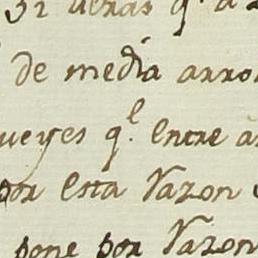 32 veras q.^e a
de media arro
ueyes q.^e Entre a
por Esta Razon
pone por Razon